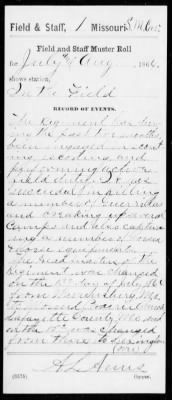 Field & Staff, 1 Missouri S. M. Cav.
Field and Staff Muster Roll
for July & Aug, 186
shows station,
In the Field
RECORD OF EVENTS.
The Regiment has dur-
ing the past two months
been engaged in scout
ing, escorting and
performing
field duties. It was
successful in killing
a number of Guerrillas
and breaking up several
Camps and also captur
ing a number of
Horse equipments.
The Head quarters of the
Regiment was changed
on the day of July 186
from Warrensburg, Mo.
to
Lafayette County Mo. and
on the was changed
from there to Lexington
(Mo)
Copyist.